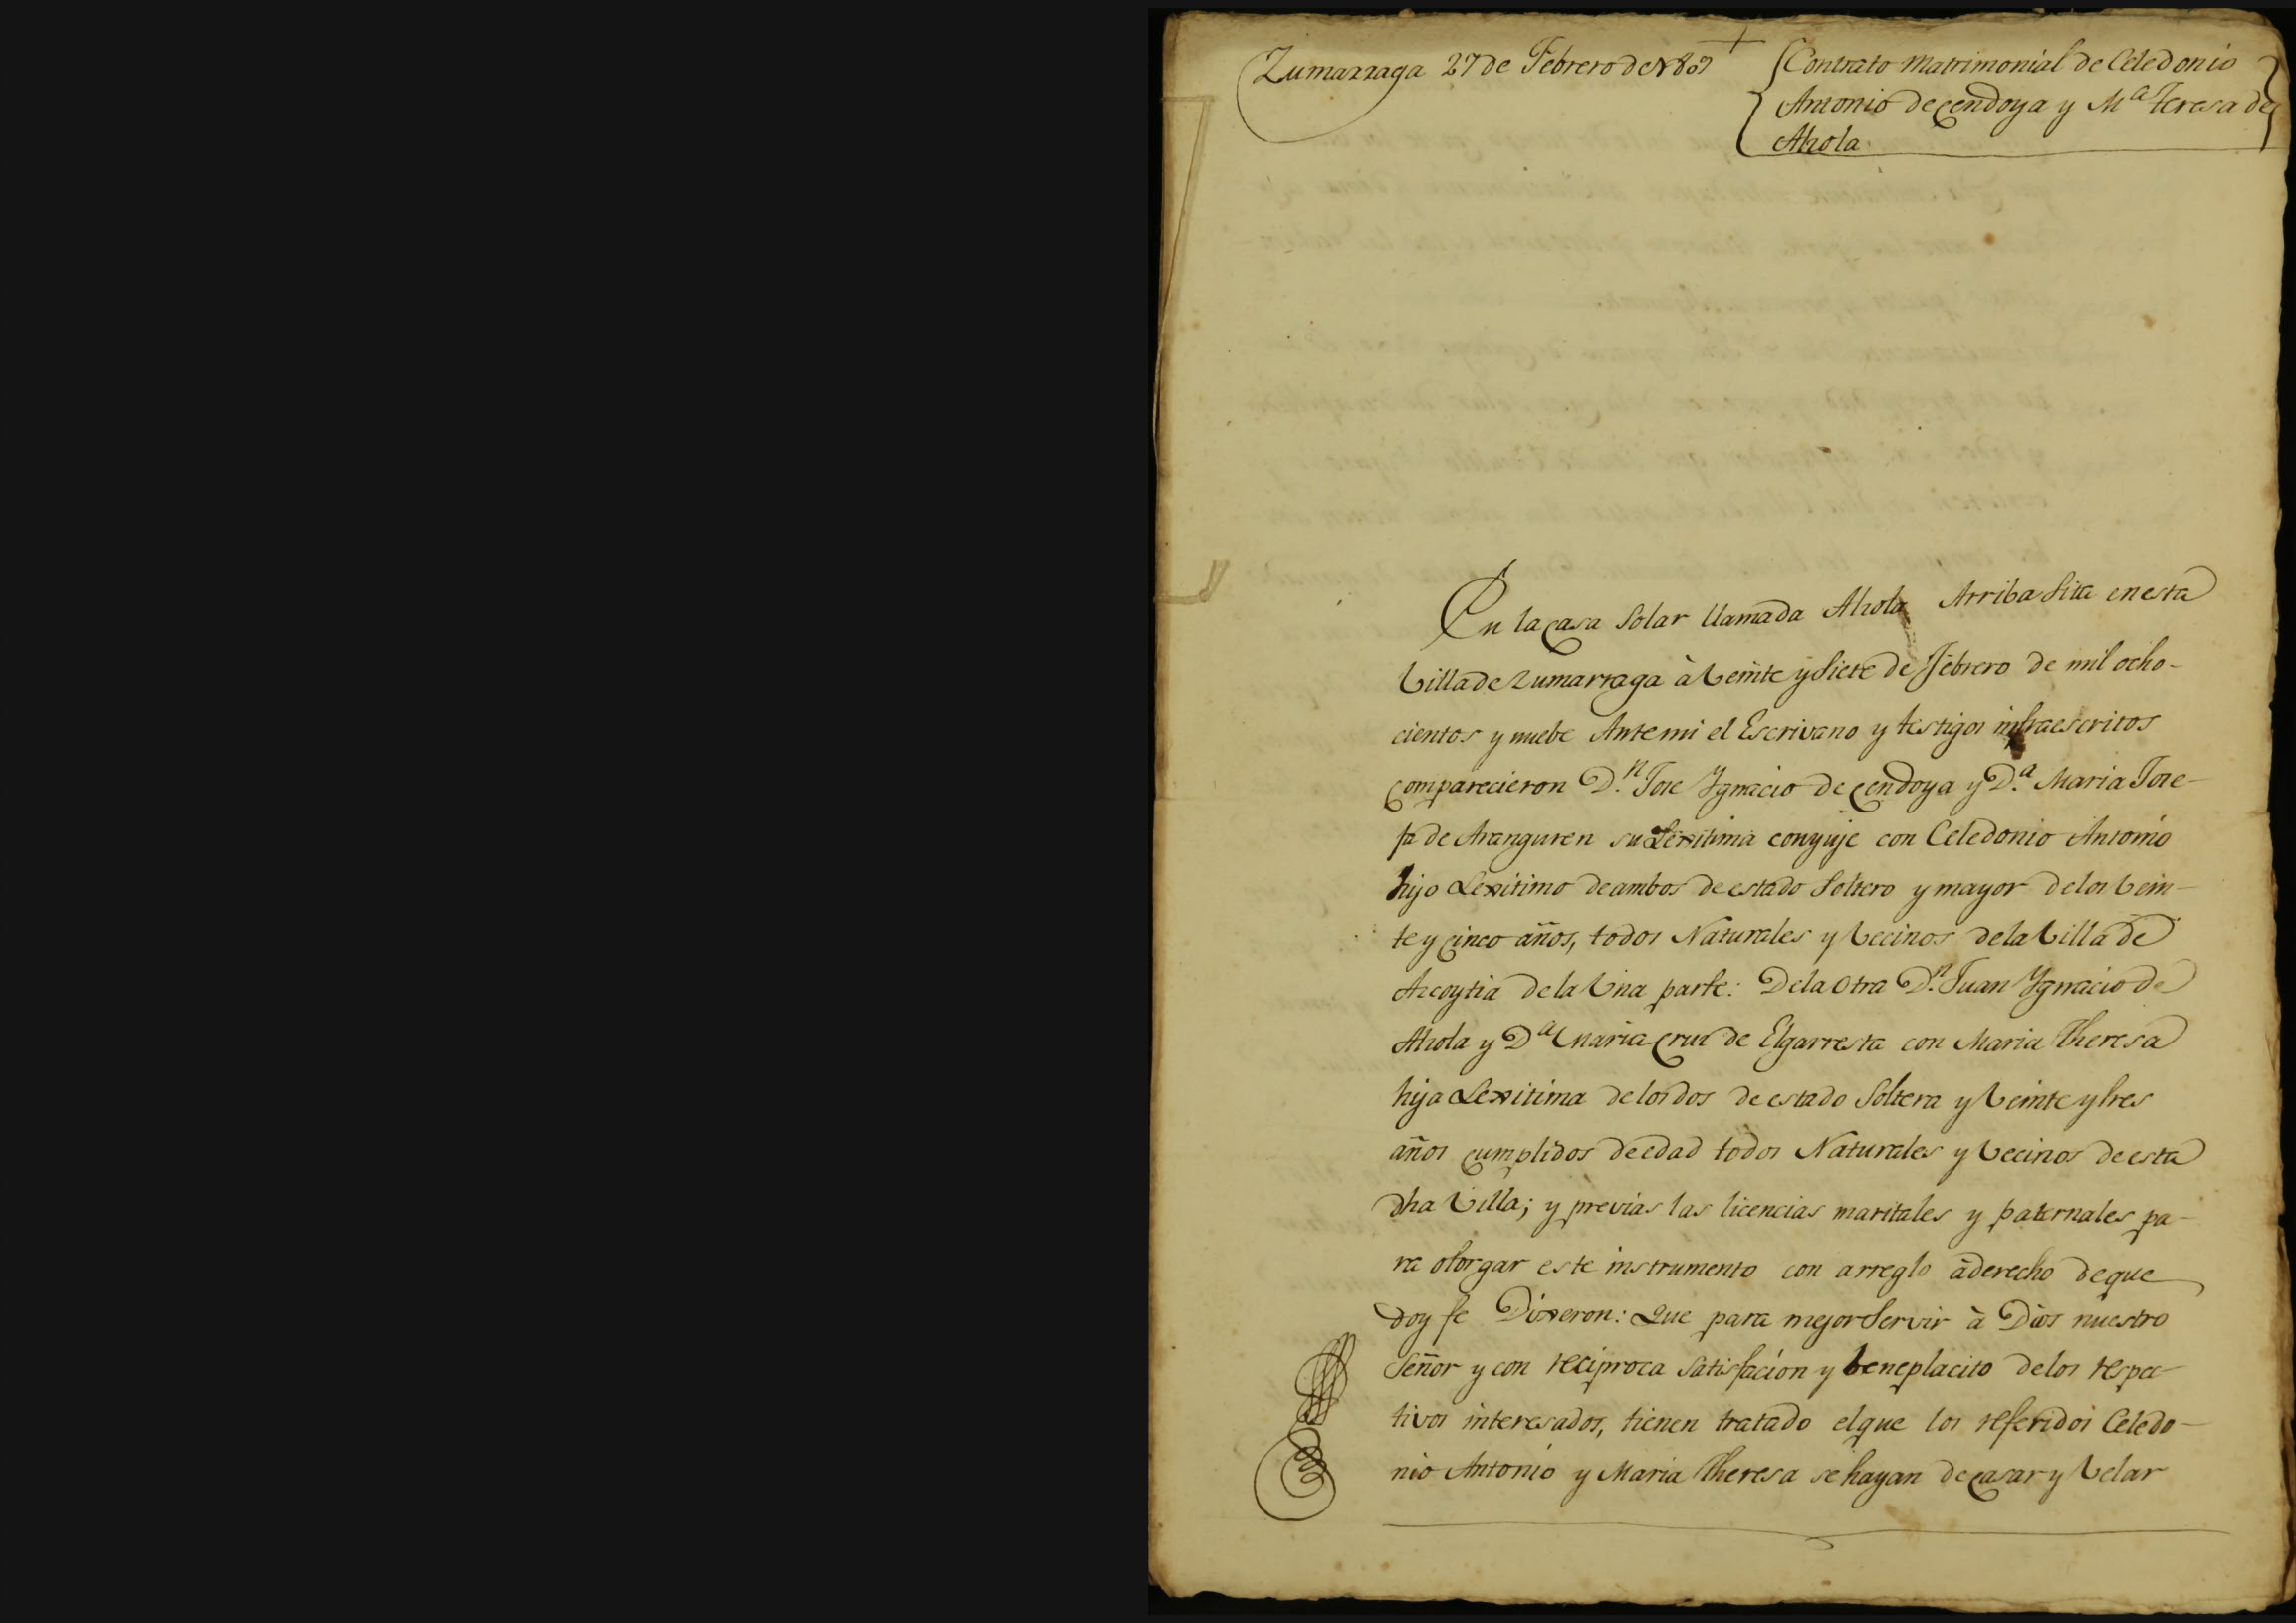 +
Zumarraga 27 de Febrero de 1809
Contrato Matrimonial de Celedonio
Antonio de Cendoya y Mª Teresa de
Alzola.
En la casa Solar llamada Alzola Arriba Sita en esta
Villa de Zumarraga à Veinte y Siete de Febrero de mil ocho-
cientos y nuebe Ante mi el Escrivano y testigos infraescritos
comparecieron D.n Jose Ygnacio de Cendoya y D.a Maria Jose-
fa de Aranguren su Lexitima conyuje con Celedonio Antonio
hijo Lexitimo de ambos de estado Soltero y mayor de los Vein-
te y cinco años, todos Naturales y Vecinos de la Villa de
Azcoytia de la Una parte: De la Otra D.n Juan Ygnacio de
Alzola y D.a Maria Cruz de Elgarresta con Maria Theresa
hija Lexitima de los dos de estado Soltera y Veinte y tres
años cumplidos de edad todos Naturales y Vecinos de esta
dha Villa; y previas las licencias maritales y paternales pa-
ra otorgar este instrumento con arreglo à derecho de que
doy fe Dixeron: Que para mejor Servir à Dios nuestro
Señor y con reciproca Satisfacion y beneplacito de los respec-
tivos interesados, tienen tratado el que los referidos Celedo-
nio Antonio y Maria Theresa se hayan de casar y Velar